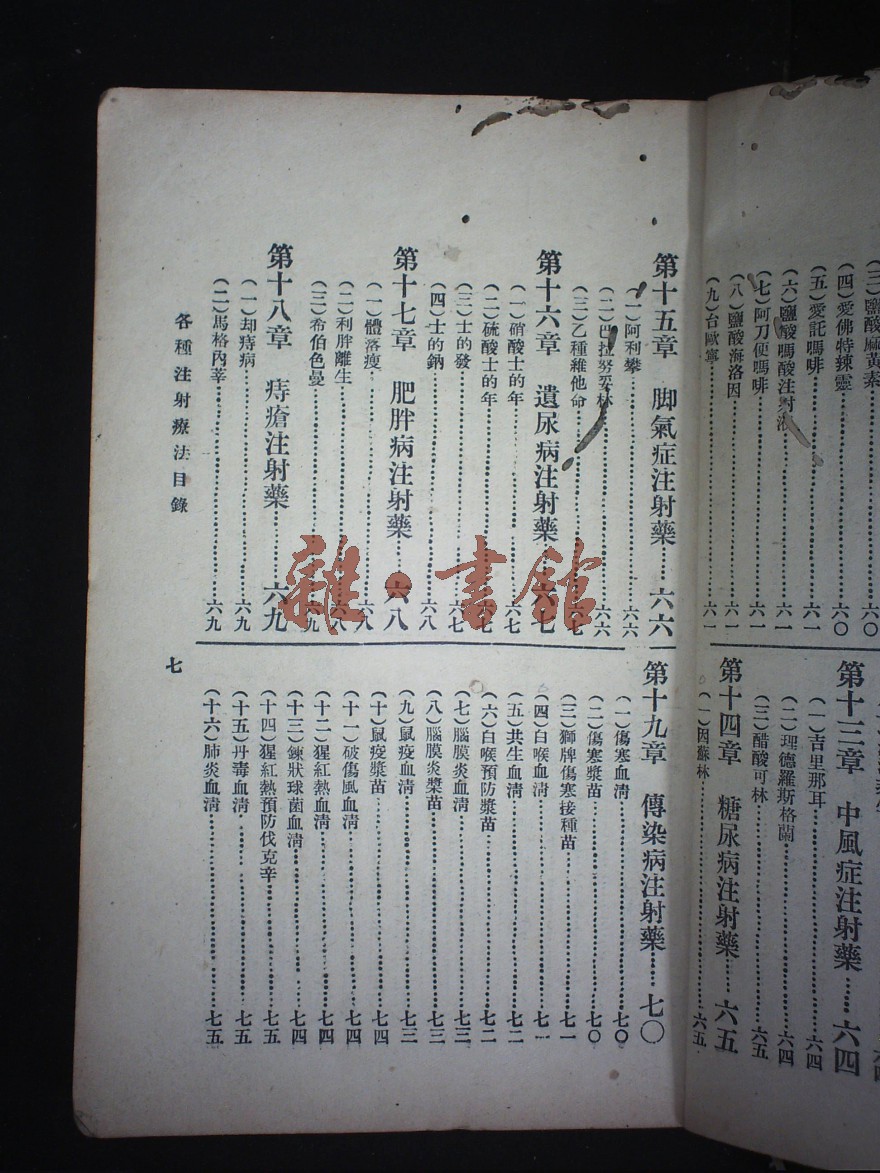 (三)鹽酸麻黃素
六〇
(四)愛佛特辣靈
六〇
(五)愛託嗎啡
六一
(六)鹽酸嗎酸注射液
六一
(七)阿刀便嗎啡
六一
(八)鹽酸海洛因
六一
(九)台歐寧
六一
第十三章 中風症注射藥
六四
(一)吉里那耳
六四
(二)理德羅斯格蘭
六四
(三)醋酸可林
六五
第十四章 糖尿病注射藥
六五
(一)因蘇林
六五
第十五章 脚氣症注射藥
六六
(一)阿利攀
六六
(二)巴拉努奕林
六六
(三)乙種維他命
六七
第十六章 遺尿病注射藥
六七
(一)硝酸士的年
六七
(二)硫酸士的年
六七
(三)士的發
六七
(四)士的鈉
六八
第十七章 肥胖病注射藥
六八
(一)體落瘦
六八
(二)利胖離生
六八
(三)希伯色曼
六九
第十八章 痔瘡注射藥
六九
(一)却痔病
六九
(二)馬格內莘
六九
第十九章 傳染病注射藥
七〇
(一)傷寒血清
七〇
(二)傷寒漿苗
七〇
(三)獅牌傷寒接種苗
七一
(四)白喉血清
七一
(五)共生血清
七二
(六)白喉預防漿苗
七二
(七)腦膜炎血清
七三
(八)腦膜炎漿苗
七三
(九)鼠疫血清
七三
(十)鼠疫漿苗
七四
(十一)破傷風血清
七四
(十二)猩紅熱血清
七四
(十三)鍊狀球菌血清
七四
(十四)猩紅熱預防伐克辛
七五
(十五)丹毒血清
七五
(十六)肺炎血清
七五
各種注射療法目錄
七
雜·書館